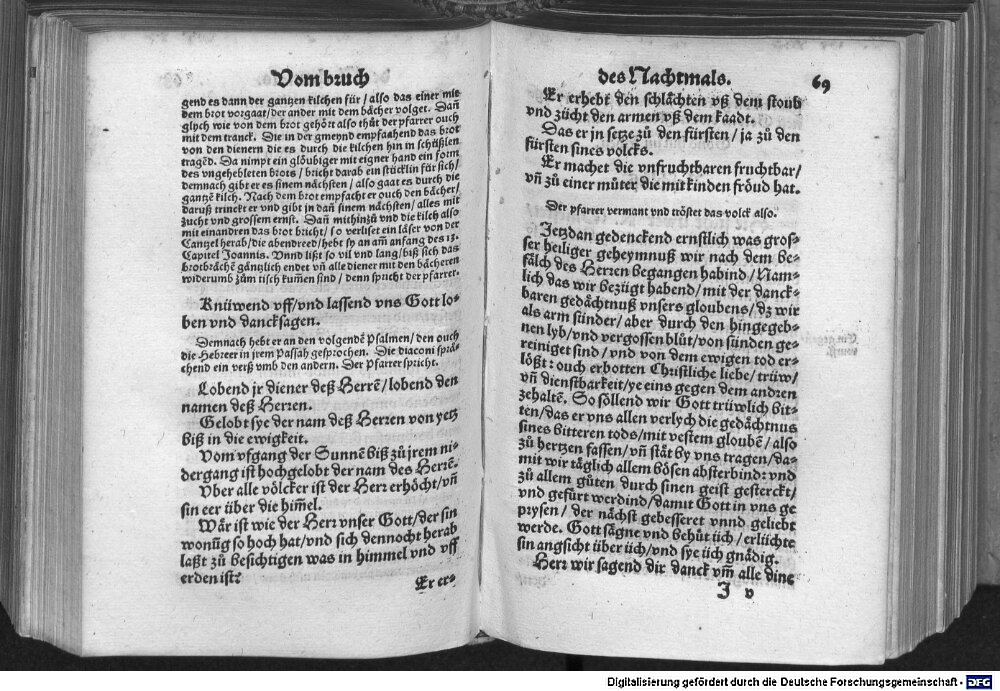 Vom bruch
gend es dann der gantzen kilchen für / also das einer mit
dem brot vorgaat / der ander mit dem bächer volget. Dañ
glych wie von dem brot gehört also thůt der pfarrer ouch
mit dem tranck. Die in der gmeynd empfachend das brot
von den dieneren die es durch die kilchen hin in schüßlen
tragẽd. Da nimpt ein glöubiger mit eigner hand ein form
des ungehebleten brots / bricht darab ein stücklin für sich /
demnach gibt er es sinem nächsten / also gaat es durch die
gantzẽ kilch. Nach dem brot empfacht er ouch den bächer /
daruß trinckt er vnd gibt in dañ sinem nächsten / alles mit
zucht vnd grossem ernst. Dañ mithinzů vnd die kilch also
mit einandren das brot bricht / so verliset ein läser von der
Cantzel herab / die abendreed / hebt sy an am̃ anfang des 13.
Capitel Joannis. Vnnd lißt so vil vnd lang / biß sich das
brotbrächẽ gäntzlich endet vñ alle diener mit den bächeren
widerumb zům tisch kum̃en sind / denn spricht der pfarrer.
Knüwend vff / vnd lassend vns Gott lo⸗
ben vnd dancksagen.
Demnach hebt er an den volgendẽ Psalmen / den ouch
die Hebreer in jrem Passah gesprochen. Die diaconi sprä⸗
chend ein verß vmb den andern. Der Pfarrer spricht.
Lobend jr diener deß Herrẽ / lobend den
namen deß Herren.
Gelobt sye der nam deß Herren von yetz
biß in die ewigkeit.
Vom vfgang der Sunnẽ biß zů jrem ni⸗
dergang ist hochgelobt der nam des Herrẽ.
Vber alle völcker ist der Herr erhöcht / vñ
sin eer über die him̃el.
Wär ist wie der Herr vnser Gott / der sin
wonũg so hoch hat / vnd sich dennocht herab
laßt zů besichtigen was in himmel vnd vff
erden ist?
Er er⸗
des Nachtmals.
69
Er erhebt den schlächten vß dem stoub
vnd zücht den armen vß dem kaadt.
Das er jn setze zů den fürsten / ja zů den
fürsten sines volcks.
Er machet die vnfruchtbaren fruchtbar /
vñ zů einer můter, die mit kinden fröud hat.
Der pfarrer vermant vnd tröstet das volck also.
Jetzdan gedenckend ernstlich was gros⸗
ser heiliger geheymnuß wir nach dem be⸗
fälch des Herren begangen habind / Nam⸗
lich das wir bezügt habend / mit der danck⸗
baren gedächtnuß vnsers gloubens / dz wir
als arm sünder / aber durch den hingegeb⸗
nen lyb / vnd vergossen blůt / von sünden ge⸗
reiniget sind / vnd von dem ewigen tod er⸗
lößt: ouch erbotten Christliche liebe / trüw /
vñ dienstbarkeit / ye eins gegen dem andren
zehaltẽ. So söllend wir Gott trüwlich bit⸗
ten / das er vns allen verlych die gedächtnus
sines bitteren tods / mit vestem gloubẽ / also
zů hertzen fassen / vñ stät by vns tragen / da⸗
mit wir täglich allem bösen absterbind: vnd
zů allem gůten durch sinen geist gesterckt /
vnd gefůrt werdind / damit Gott in vns ge
prysen / der nächst gebesseret vnnd geliebt
werde. Gott sägne vnd behůt üch / erlüchte
sin angsicht über üch / vnd sye üch gnädig.
Herr wir sagend dir danck vm̃ alle dine
J v
Digitalisierung gefördert durch die Deutsche Forschungsgemeinschaft - DFG